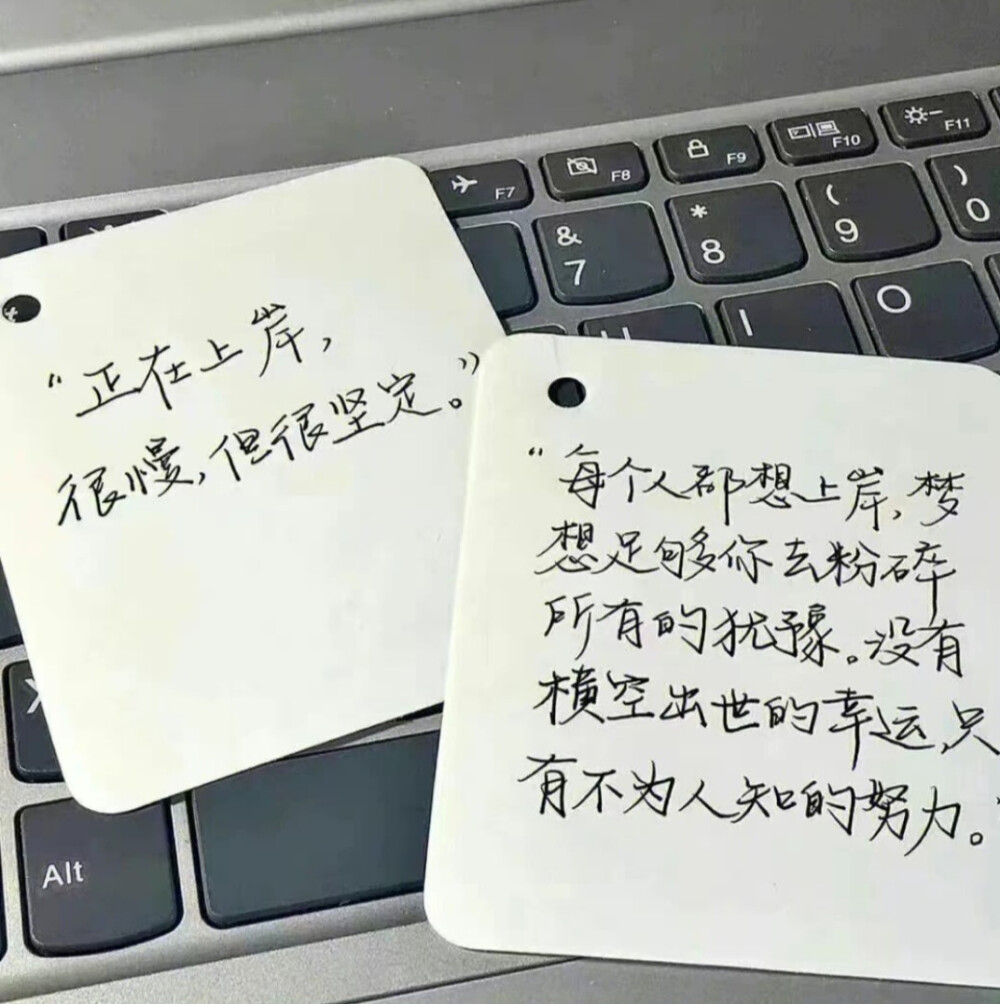 “正在上岸，
很慢，但很坚定。”
“每个人都想上岸，梦
想足够你去粉碎
所有的犹豫。没有
横空出世的幸运，只
有不为人知的努力。”
F7
F8
F9
F10
F11
&
7
*
8
(
9
)
0
U
I
O
X
Alt